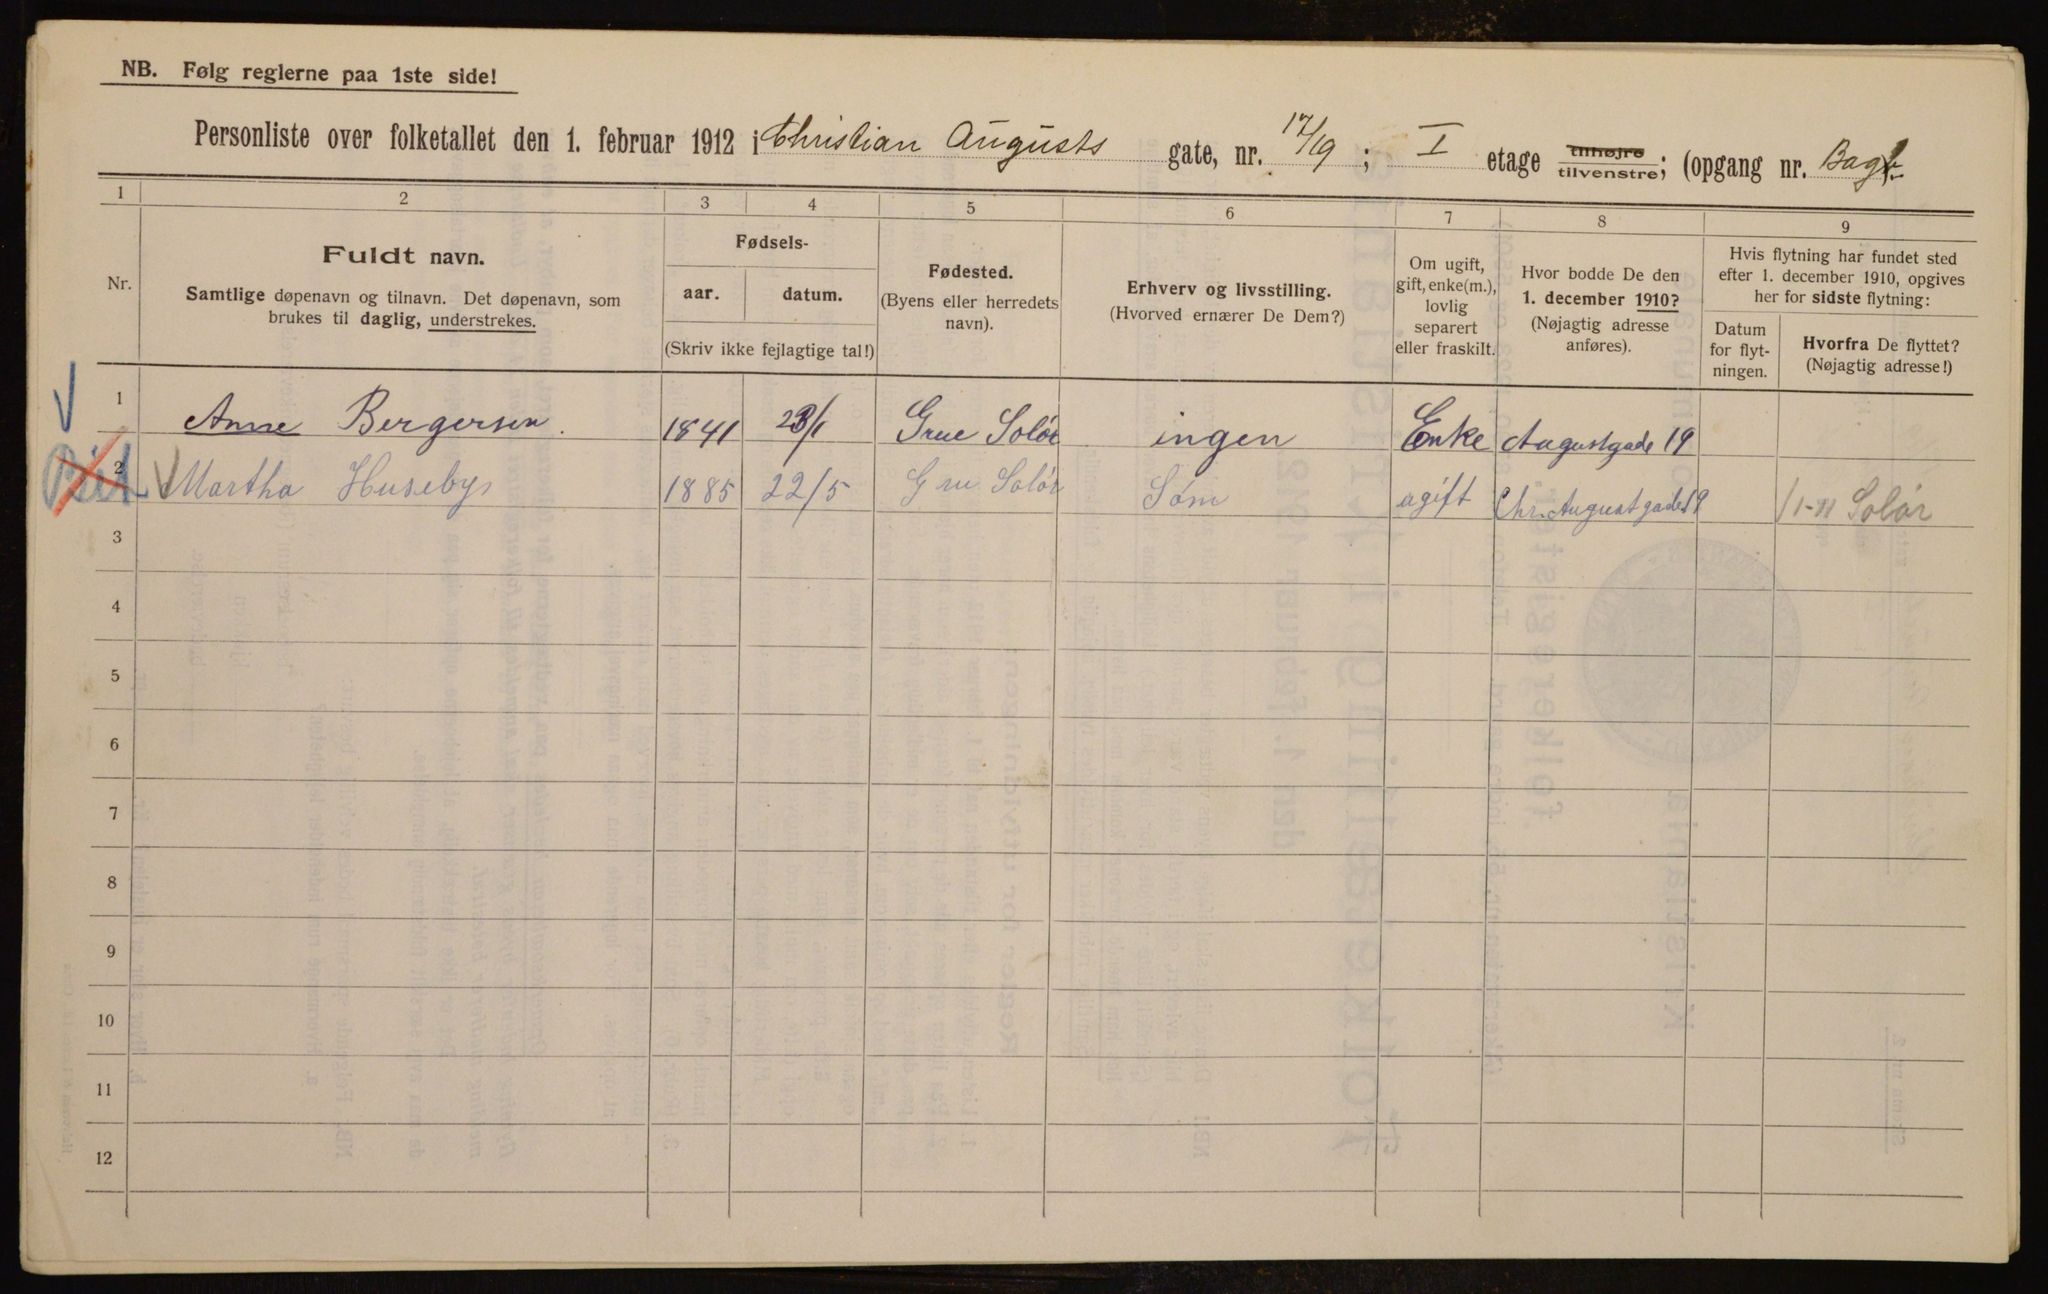 NB. Følg reglerne paa 1ste side!
Personliste over folketallet den 1. februar 1912 i Christian Augusts gate, nr. 17/19; I etage tilhøjre tilvenstre; (opgang nr. Bagb.
1 2 3 4 5 6 7 8 9
Nr.
Fuldt navn.
Samtlige døpenavn og tilnavn. Det døpenavn, som
brukes til daglig, understrekes.
Fødsels-
aar. datum.
(Skriv ikke fejlagtige tal!)
Fødested.
(Byens eller herredets
navn).
Erhverv og livsstilling.
(Hvorved ernærer De Dem?)
Om ugift,
gift, enke(m.),
lovlig
separert
eller fraskilt.
Hvor bodde De den
1. december 1910?
(Nøjagtig adresse
anføres).
Hvis flytning har fundet sted
efter 1. december 1910, opgives
her for sidste flytning:
Datum
for flyt-
ningen.
Hvorfra De flyttet?
(Nøjagtig adresse!)
1 Anne Bergersen. 1841 /1 Grue Solør ingen Enke Augustgade 19
2 Martha Huseby 1885 22/5 Grue Solør Søm ugift Chr. Augustgade 19 /1-11 Solør
3
4
5
6
7
8
9
10
11
12